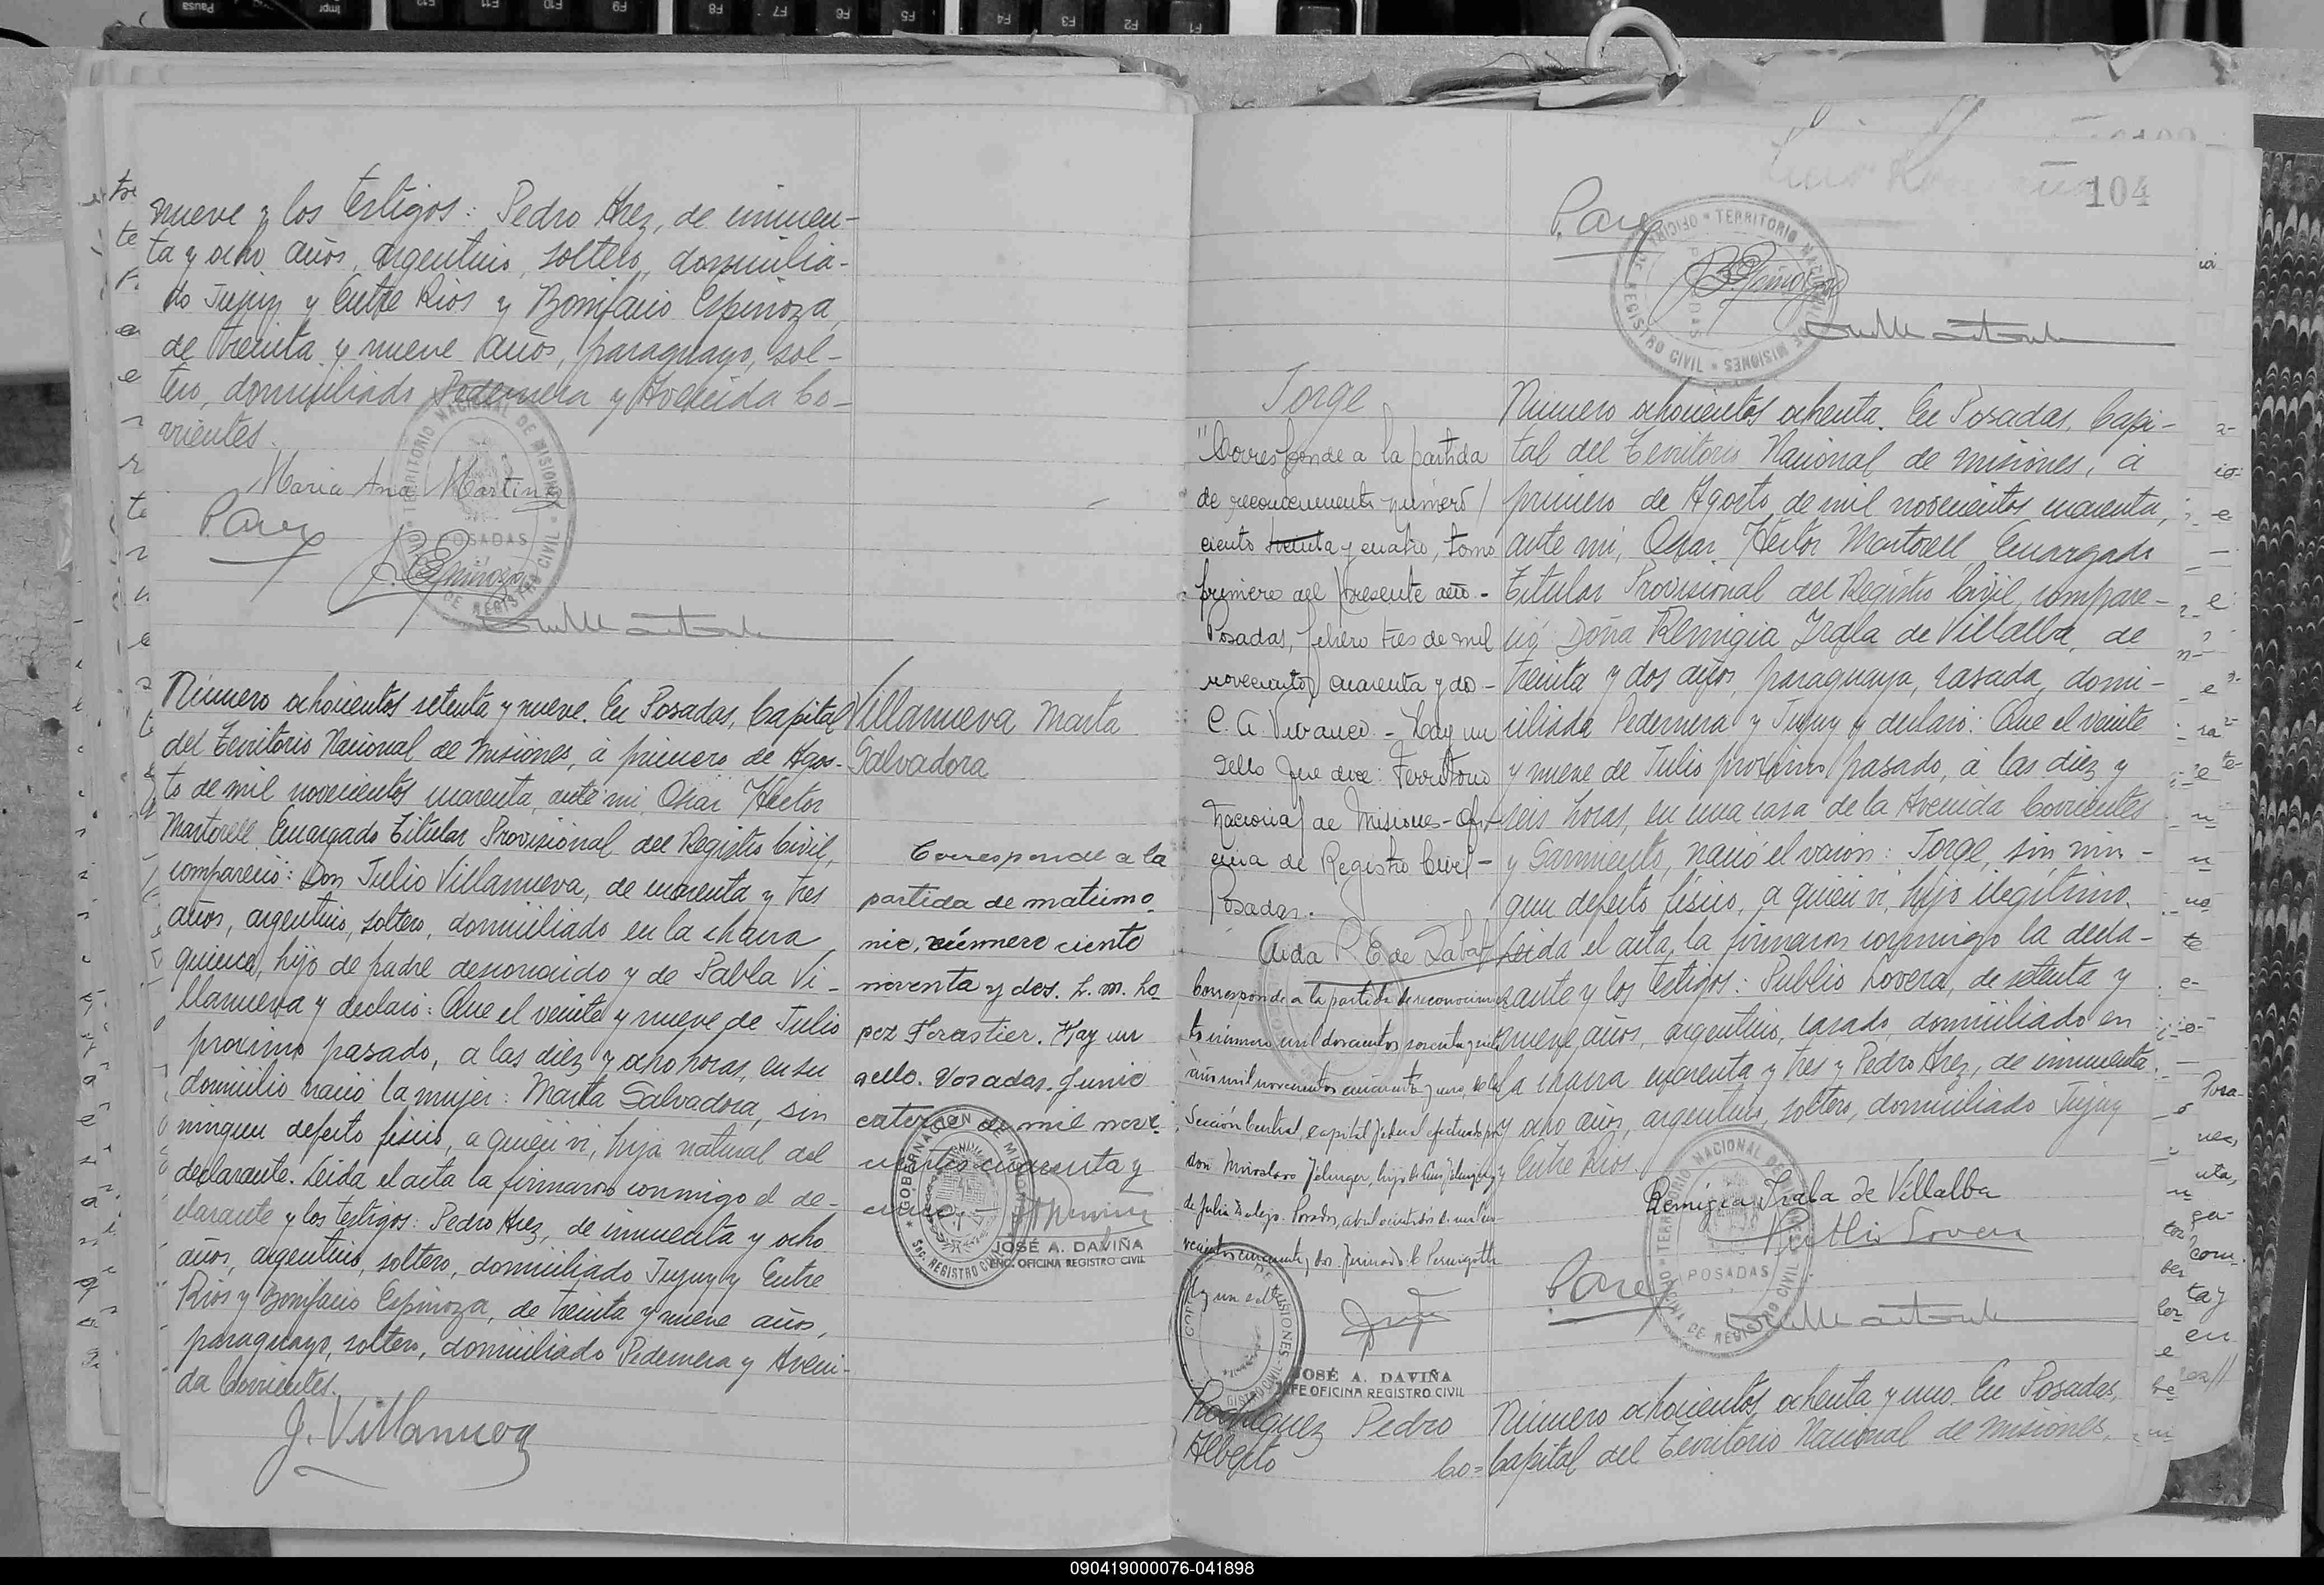 nueve y los testigos: Pedro Arez, de cincuen-
ta y ocho años, argentino, soltero, domicilia-
do Jujuy y Entre Rios y Bonifacio Espinoza,
de treinta y nueve años, paraguayo, sol-
tero, domiciliado Pedernera y Avenida Co-
rrientes.
Maria Ana Martinez
P. Arez
B. Espinoza
TERRITORIO NACIONAL DE MISIONES
POSADAS
DE REGISTRO CIVIL
Número ochocientos setenta y nueve. En Posadas, Capital
del Territorio Nacional de Misiones, á primero de Agos-
to de mil novecientos cuarenta, ante mi, Oscar Héctor
Martorell, Encargado Titular Provisional del Registro Civil,
compareció: Don Julio Villanueva, de cuarenta y tres
años, argentino, soltero, domiciliado en la chacra
quince, hijo de padre desconocido y de Pabla Vi-
llanueva y declaró: Que el veinte y nueve de Julio
proximo pasado, a las diez y ocho horas, en su
domicilio nació la mujer: Marta Salvadora, sin
ningun defecto fisico, a quien vi, hija natural del
declarante. Leida el acta la firmaron conmigo el de-
clarante y los testigos: Pedro Arez, de cincuenta y ocho
años, argentino, soltero, domiciliado Jujuy y Entre
Rios y Bonifacio Espinoza, de treinta y nueve años,
paraguayo, soltero, domiciliado Pedernera y Aveni-
da Corrientes.
J. Villanueva
Villanueva Marta
Salvadora
Corresponde a la
partida de matrimo
nio, número ciento
noventa y dos. L. M. Lo
pez Forastier. Hay un
sello. Posadas. Junio
catorce de mil nove
cientos cuarenta y
GOBERNACION DE MISIONES
SEC. REGISTRO CIVIL
JOSÉ A. DAVIÑA
ENC. OFICINA REGISTRO CIVIL
104
P. Arez
B. Espinoza
TERRITORIO NACIONAL DE MISIONES
REGISTRO CIVIL
Jorge
"Corresponde a la partida
de reconocimiento número
ciento treinta y cuatro, tomo
primero del presente año -
Posadas, febrero tres de mil
novecientos cuarenta y dos -
C. A. Vivanco - Hay un
sello que dice: Territorio
Nacional de Misiones - Ofi-
cina de Registro Civil -
Posadas.
Aida P. E. de
Corresponde a la partida de reconocimien
to número mil doscientos
año mil novecientos cincuenta y uno,
Sección Central, capital federal efectuado por
don Miroslavo
de Julia Posadas, abril veintidós de mil no-
vecientos cincuenta y dos. firmado:
Hay un sello
MISIONES
JOSÉ A. DAVIÑA
JEFE OFICINA REGISTRO CIVIL
Número ochocientos ochenta. En Posadas, Capi-
tal del Territorio Nacional de Misiones, á
primero de Agosto de mil novecientos cuarenta,
ante mi, Oscar Héctor Martorell, Encargado
Titular Provisional del Registro Civil, compare-
ció: Doña Remigia Irala de Villalba, de
treinta y dos años, paraguaya, casada, domi-
ciliada Pedernera y Jujuy y declaró: Que el veinte
y nueve de Julio proximo pasado, á las diez y
seis horas, en una casa de la Avenida Corrientes
y Sarmiento, nació el varon: Jorge, sin nin-
gun defecto fisico, a quien vi, hijo ilegitimo.
Leida el acta, la firmaron conmigo la decla-
rante y los testigos: Publio Lovera, de setenta y
nueve años, argentino, casado, domiciliado en
la chacra cuarenta y tres y Pedro Arez, de cincuenta
y ocho años, argentino, soltero, domiciliado Jujuy
y Entre Rios.
Remigia Irala de Villalba
Publio Lovera
P. Arez
TERRITORIO NACIONAL DE
POSADAS
DE REGISTRO CIVIL
Rodriguez Pedro
Alberto
Co=
Número ochocientos ochenta y uno. En Posadas,
Capital del Territorio Nacional de Misiones,
090419000076-041898